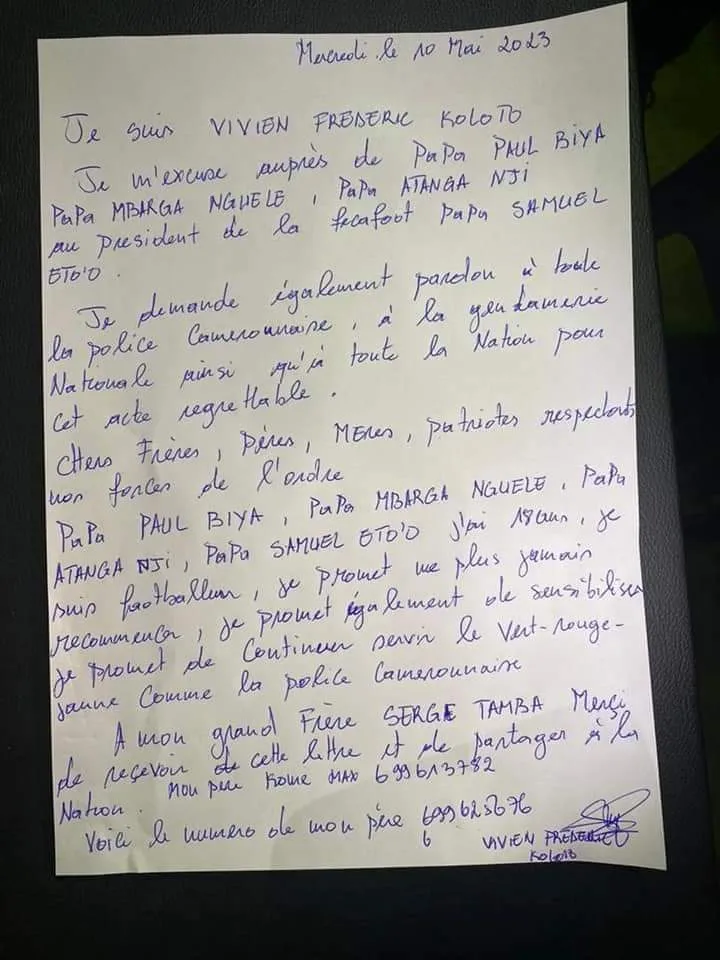 Mercredi le 10 Mai 2023
Je suis VIVIEN FREDERIC KOLOTO
Je m'excuse auprès de PaPa PAUL BIYA
PaPa MBARGA NGUELE, PaPa ATANGA NJI
au president de la fecafoot PaPa SAMUEL
ETO'O.
Je demande également pardon à toute
la police Camerounaise, à la gendarmerie
Nationale ainsi qu'à toute la Nation pour
cet acte regrettable.
CHers Frères, Pères, MEres, patriotes respectants
nos forces de l'ordre
PaPa PAUL BIYA, PaPa MBARGA NGUELE, PaPa
ATANGA NJI, PaPa SAMUEL ETO'O j'ai 18 ans, je
suis footballeur, je promet ne plus jamais
recommencer, je promet également de sensibiliser
je promet de Continuer servir le Vert-rouge-
jaune Comme la police Camerounaise
A mon grand Frère SERGE TAMBA Merçi
de reçevoir cette lettre et de partager à la
Nation. MON père Kome MAX 699613782
Voiçi le numero de mon père 699625676
6 VIVIEN FREDERIC
KOLOTO